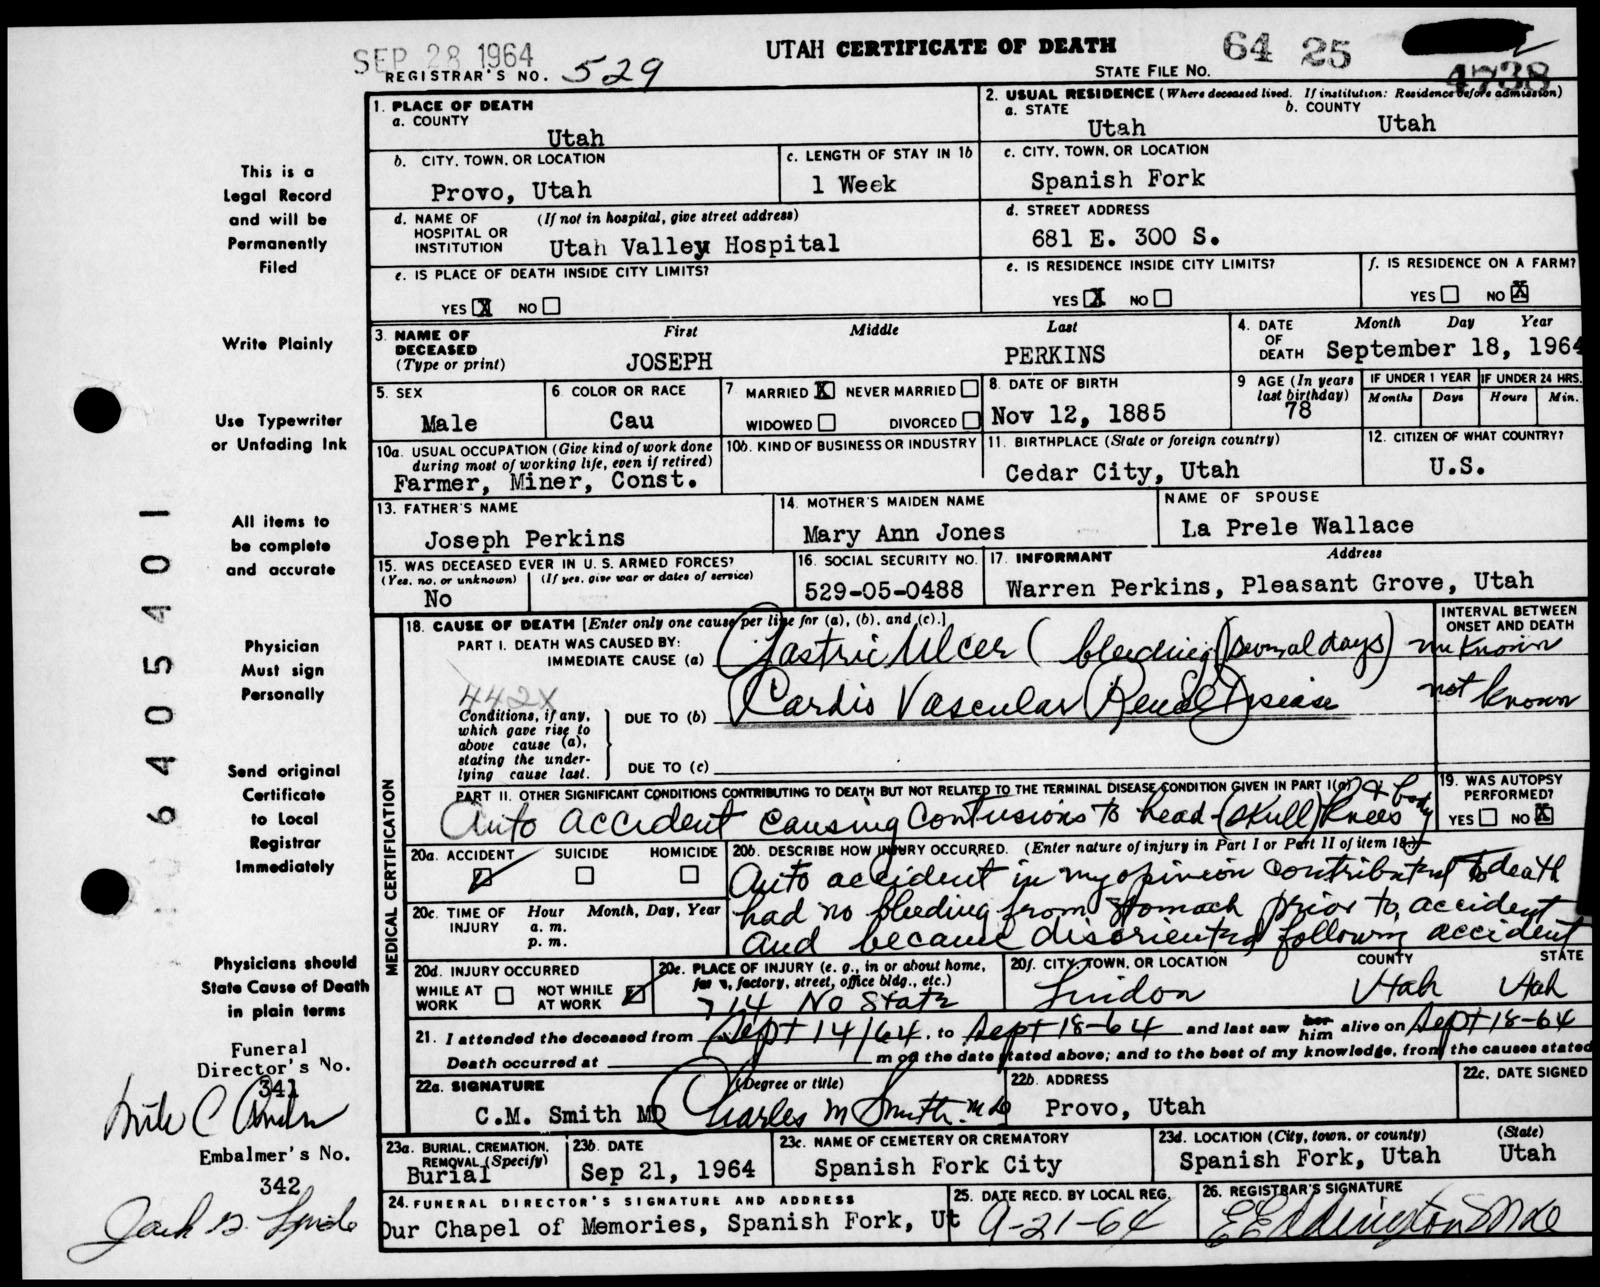 SEP 28 1964
UTAH CERTIFICATE OF DEATH
64 25
REGISTRAR'S NO. 529
STATE FILE NO. 4738
This is a
Legal Record
and will be
Permanently
Filed
Write Plainly
Use Typewriter
or Unfading Ink
All items to
be complete
and accurate
Physician
Must sign
Personally
Send original
Certificate
to Local
Registrar
Immediately
Physicians should
State Cause of Death
in plain terms
Funeral
Director's No.
341
Embalmer's No.
342
6405401
1. PLACE OF DEATH
a. COUNTY
Utah
2. USUAL RESIDENCE (Where deceased lived. If institution: Residence before admission)
a. STATE
Utah
b. COUNTY
Utah
b. CITY, TOWN, OR LOCATION
Provo, Utah
c. LENGTH OF STAY IN 1b
1 Week
c. CITY, TOWN, OR LOCATION
Spanish Fork
d. NAME OF HOSPITAL OR INSTITUTION
(If not in hospital, give street address)
Utah Valley Hospital
d. STREET ADDRESS
681 E. 300 S.
e. IS PLACE OF DEATH INSIDE CITY LIMITS?
YES X NO
e. IS RESIDENCE INSIDE CITY LIMITS?
YES X NO
f. IS RESIDENCE ON A FARM?
YES NO X
3. NAME OF DECEASED (Type or print)
First Middle Last
JOSEPH PERKINS
4. DATE OF DEATH
Month Day Year
September 18, 1964
5. SEX
Male
6. COLOR OR RACE
Cau
7. MARRIED X NEVER MARRIED
WIDOWED DIVORCED
8. DATE OF BIRTH
Nov 12, 1885
9 AGE (In years last birthday)
78
IF UNDER 1 YEAR
Months Days
IF UNDER 24 HRS.
Hours Min.
10a. USUAL OCCUPATION (Give kind of work done during most of working life, even if retired)
Farmer, Miner, Const.
10b. KIND OF BUSINESS OR INDUSTRY
11. BIRTHPLACE (State or foreign country)
Cedar City, Utah
12. CITIZEN OF WHAT COUNTRY?
U.S.
13. FATHER'S NAME
Joseph Perkins
14. MOTHER'S MAIDEN NAME
Mary Ann Jones
NAME OF SPOUSE
La Prele Wallace
15. WAS DECEASED EVER IN U. S. ARMED FORCES?
(Yes, no, or unknown) (If yes, give war or dates of service)
No
16. SOCIAL SECURITY NO.
529-05-0488
17. INFORMANT Address
Warren Perkins, Pleasant Grove, Utah
MEDICAL CERTIFICATION
18. CAUSE OF DEATH [Enter only one cause per line for (a), (b), and (c).]
INTERVAL BETWEEN ONSET AND DEATH
PART I. DEATH WAS CAUSED BY:
IMMEDIATE CAUSE (a) Gastric Ulcer (bleeding)(several days) unknown
442X
Conditions, if any, which gave rise to above cause (a), stating the underlying cause last.
DUE TO (b) Cardio Vascular Renal Disease not known
DUE TO (c)
PART II. OTHER SIGNIFICANT CONDITIONS CONTRIBUTING TO DEATH BUT NOT RELATED TO THE TERMINAL DISEASE CONDITION GIVEN IN PART I(a)
Auto accident causing contusions to head (skull) knees & body
19. WAS AUTOPSY PERFORMED?
YES NO X
20a. ACCIDENT SUICIDE HOMICIDE
20b. DESCRIBE HOW INJURY OCCURRED. (Enter nature of injury in Part I or Part II of item 18.)
Auto accident in my opinion contributed to death
had no bleeding from stomach prior to accident
and became disoriented following accident
20c. TIME OF INJURY Hour Month, Day, Year
a. m.
p. m.
20d. INJURY OCCURRED
WHILE AT WORK NOT WHILE AT WORK
20e. PLACE OF INJURY (e. g., in or about home, farm, factory, street, office bldg., etc.)
714 No State
20f. CITY, TOWN, OR LOCATION COUNTY STATE
Lindon Utah Utah
21. I attended the deceased from Sept 14/64, to Sept 18-64 and last saw her him alive on Sept 18-64
Death occurred at m on the date stated above; and to the best of my knowledge, from the causes stated
22a. SIGNATURE (Degree or title)
C.M. Smith MD Charles M Smith. MD
22b. ADDRESS
Provo, Utah
22c. DATE SIGNED
23a. BURIAL, CREMATION, REMOVAL (Specify)
Burial
23b. DATE
Sep 21, 1964
23c. NAME OF CEMETERY OR CREMATORY
Spanish Fork City
23d. LOCATION (City, town, or county) (State)
Spanish Fork, Utah Utah
24. FUNERAL DIRECTOR'S SIGNATURE AND ADDRESS
Our Chapel of Memories, Spanish Fork, Ut
25. DATE RECD. BY LOCAL REG.
9-21-64
26. REGISTRAR'S SIGNATURE